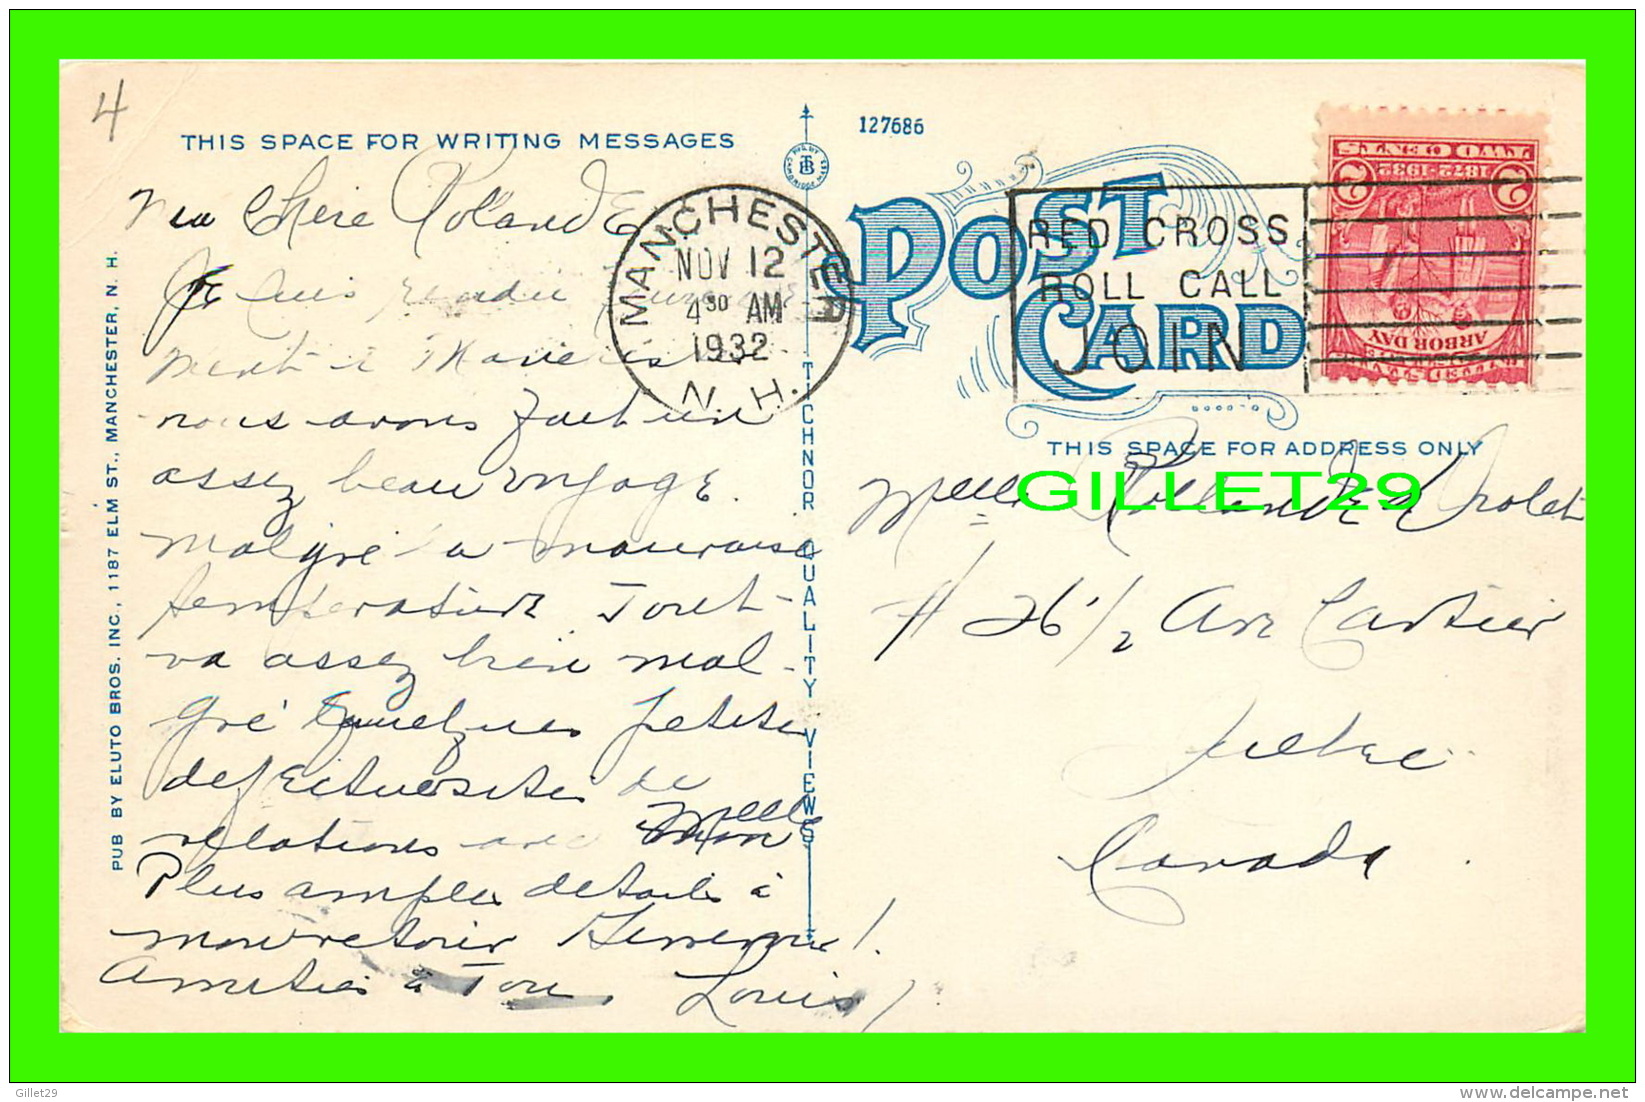 4
THIS SPACE FOR WRITING MESSAGES
127686
PUB. BY
TB
CAMBRIDGE, MASS.
POST CARD
MANCHESTER
NOV 12
4 30 AM
1932
N. H.
RED CROSS
ROLL CALL
JOIN
TWO CENTS
1872-1932
2 2
ARBOR DAY
THIS SPACE FOR ADDRESS ONLY
GILLET29
PUB BY ELUTO BROS. INC., 1187 ELM ST., MANCHESTER, N. H.
TICHNOR QUALITY VIEWS
Ma Chère Rolande
Je suis rendu
ment à Manchester
nous avons fait un
assez beau voyage
malgré la mauvaise
température Tout
va assez bien mal-
gré quelques petites
defectuosités de
relations avec Melle
Plus amples details à
mon retour
Amitiés à Tous Louis
Melle Rollande
# 26 1/2 Ave Cartier
Quebec
Canada
Gillet29
www.delcampe.net